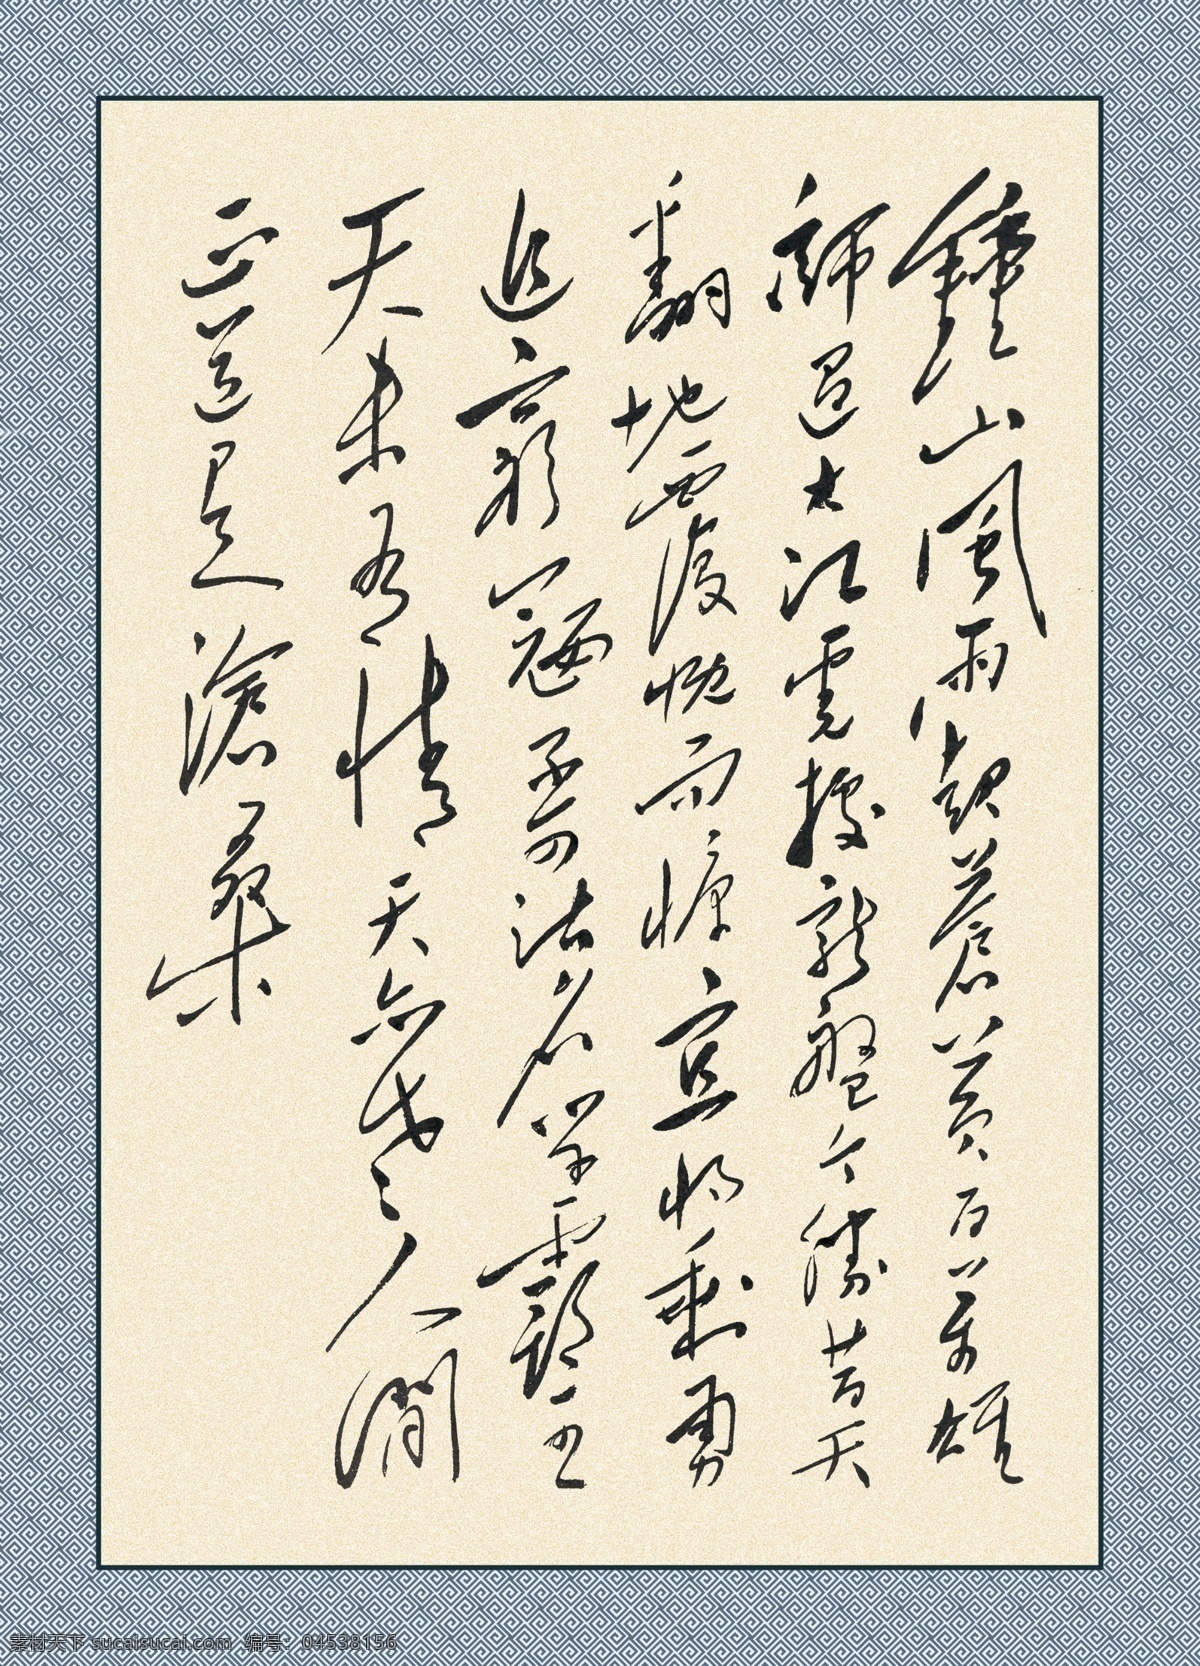 鍾山風雨起蒼黄百萬雄
師過大江虎據龍盤今勝昔天
翻地覆慨而慷宜將剩勇
追窮寇不可沽名學霸王
天若有情天亦老人間
正道是滄桑
素材天下 sucaisucai.com 编号：04538156